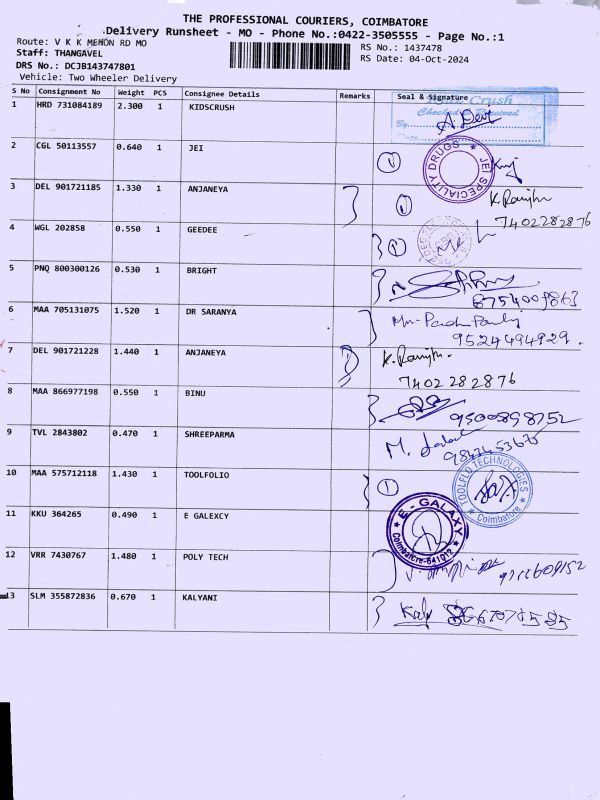 THE PROFESSIONAL COURIERS, COIMBATORE
Delivery Runsheet - MO - Phone No.:0422-3505555 - Page No.:1
Route: V K K MENON RD MO
RS No.: 1437478
Staff: THANGAVEL
RS Date: 04-Oct-2024
DRS No.: DCJB143747801
Vehicle: Two Wheeler Delivery
S No Consignment No Weight PCS Consignee Details Remarks Seal & Signature
1 HRD 731084189 2.300 1 KIDSCRUSH
2 CGL 50113557 0.640 1 JEI
JEI SPECIALITY DRUGS
3 DEL 901721185 1.330 1 ANJANEYA
7402282876
4 WGL 202858 0.550 1 GEEDEE
5 PNQ 800300126 0.530 1 BRIGHT
8754009863
6 MAA 705131075 1.520 1 DR SARANYA
9524494929.
7 DEL 901721228 1.440 1 ANJANEYA
7402282876
8 MAA 866977198 0.550 1 BINU
9500898752
9 TVL 2843802 0.470 1 SHREEPARMA
10 MAA 575712118 1.430 1 TOOLFOLIO
TOOLFLO TECHNOLOGIES Coimbatore
11 KKU 364265 0.490 1 E GALEXCY
E - GALAXY Coimbatore-641012
12 VRR 7430767 1.480 1 POLY TECH
13 SLM 355872836 0.670 1 KALYANI